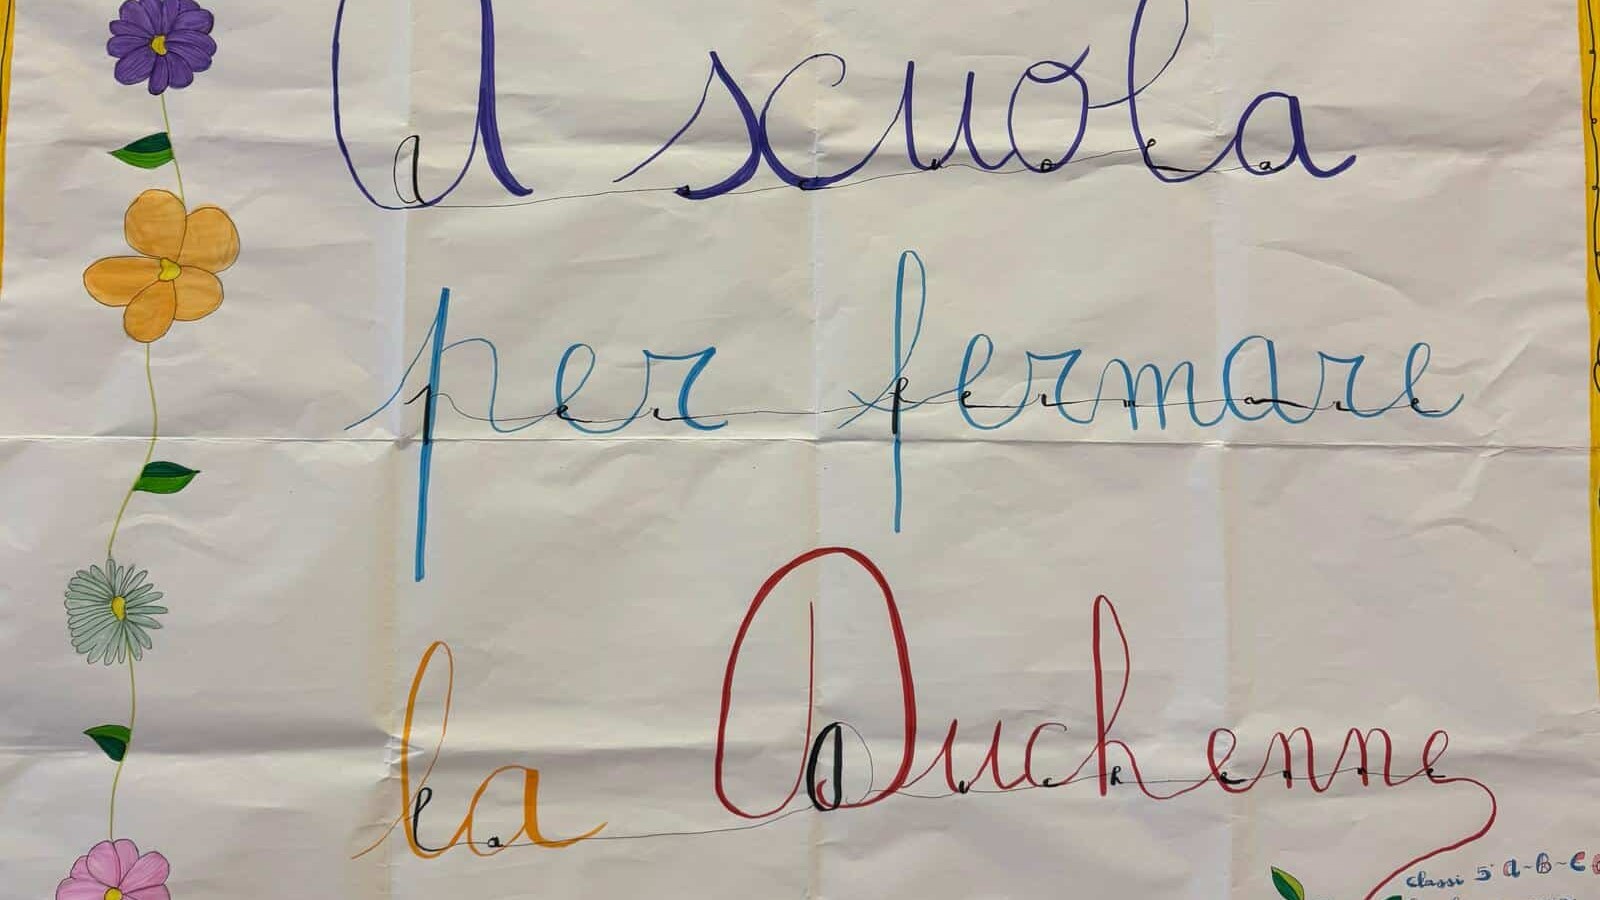 A scuola
per fermare
la Duchenne
Classi 5ª A-B-C